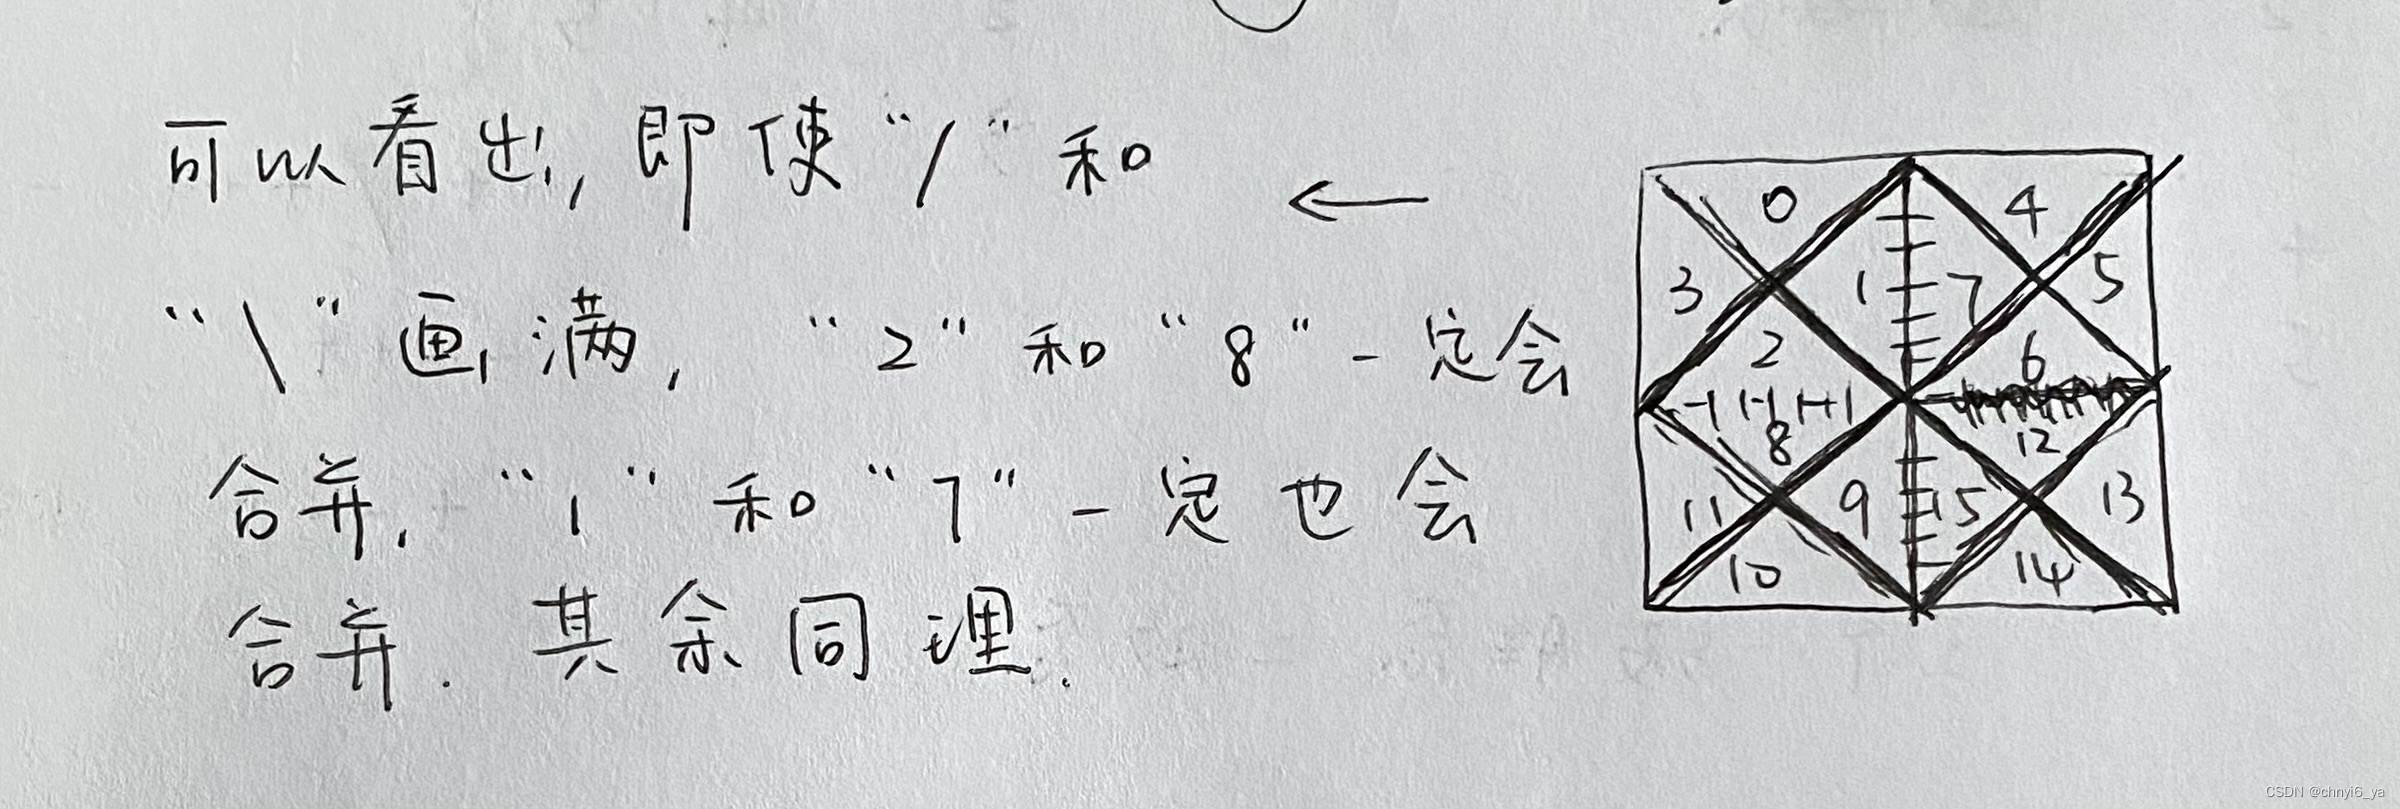 可以看出,即使“/”和 ←
“\”画满,“2”和“8”一定会
合并,“1”和“7”一定也会
合并.其余同理.
0 4
3 1 7 5
2 6
8 12
11 9 15 13
10 14
CSDN @chnyi6_ya